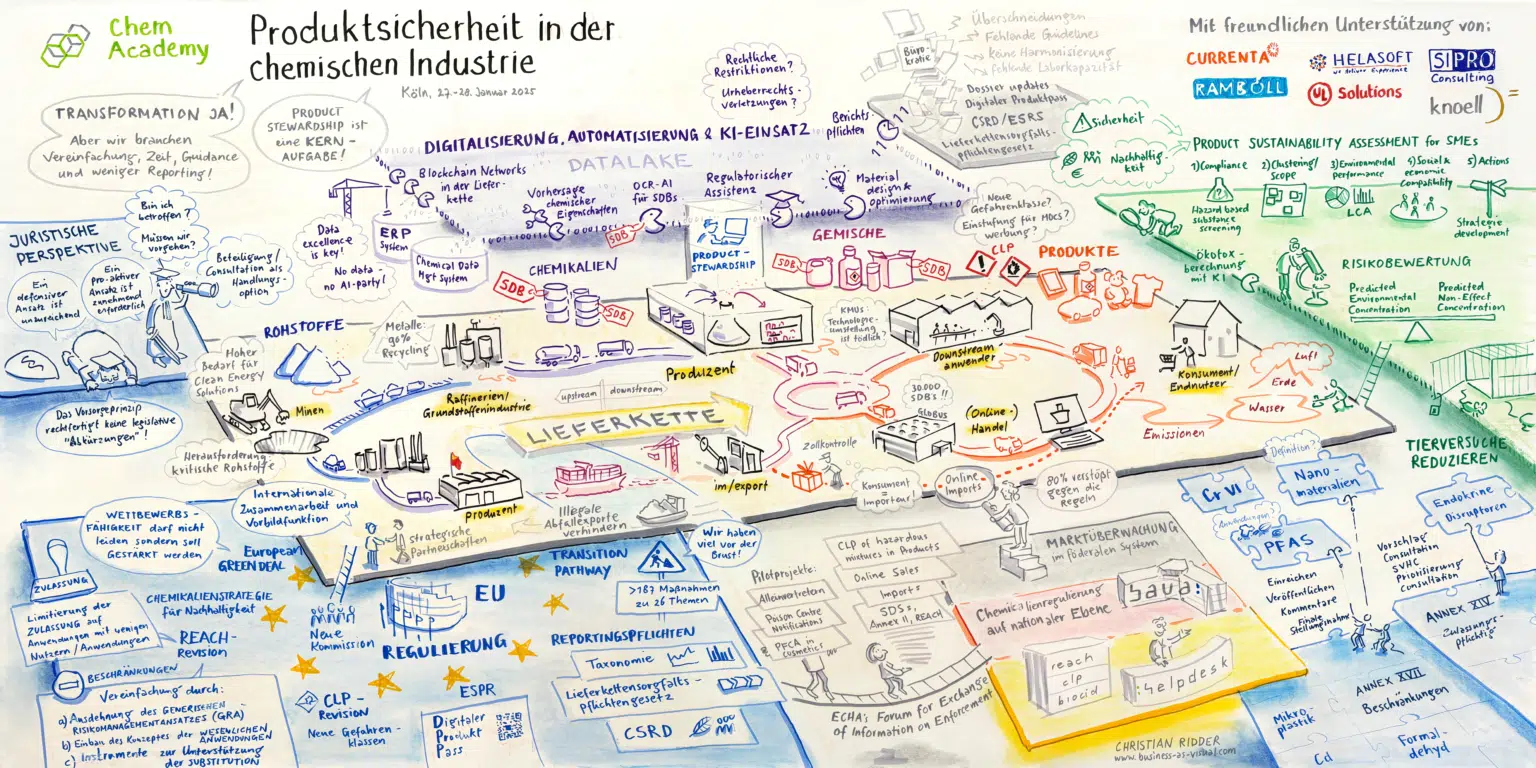 Chem
Academy
Produktsicherheit in der
chemischen Industrie
Köln, 27.-28. Januar 2025
TRANSFORMATION JA!
Aber wir brauchen
Vereinfachung, Zeit, Guidance
und weniger Reporting!
PRODUCT
STEWARDSHIP ist
eine KERN-
AUFGABE!
Rechtliche
Restriktionen?
Urheberrechts-
verletzungen?
Büro-
kratie
Überschneidungen
Fehlende Guidelines
keine Harmonisierung
fehlende Laborkapazität
Dossier updates
Digitaler Produktpass
CSRD/ESRS
Lieferkettensorgfalts-
pflichtengesetz
Berichts-
pflichten
Mit freundlichen Unterstützung von:
CURRENTA
HELASOFT
we deliver Experience
SIPRO
Consulting
RAMBOLL
UL Solutions
knoell
DIGITALISIERUNG, AUTOMATISIERUNG & KI-EINSATZ
DATALAKE
Blockchain Networks
in der Liefer-
kette
Vorhersage
chemischer
Eigenschaften
OCR-AI
für SDBs
SDB
Regulatorischer
Assistenz
Material
design &
optimierung
ERP
System
Chemical Data
Mgt System
Data
excellence
is key!
No data -
no AI-party!
PRODUCT-
STEWARDSHIP
Sicherheit
Nachhaltig-
keit
PRODUCT SUSTAINABILITY ASSESSMENT for SMEs
1) Compliance
2) Clustering/
Scope
3) Environmental
performance
4) Social &
economic
Compatibility
5) Actions
Hazard based
substance
screening
LCA
Strategie
development
Ökotox-
berechnung
mit KI
RISIKOBEWERTUNG
Predicted
Environmental
Concentration
Predicted
Non-Effect
Concentration
TIERVERSUCHE
REDUZIEREN
JURISTISCHE
PERSPEKTIVE
Bin ich
betroffen?
Müssen wir
vorgehen?
Beteiligung/
Consultation als
Handlungs-
option
Ein
defensiver
Ansatz ist
unzureichend
Ein
pro-aktiver
Ansatz ist
zunehmend
erforderlich
Das Vorsorgeprinzip
rechtfertigt keine legislative
"Abkürzungen"!
ROHSTOFFE
Hoher
Bedarf für
Clean Energy
Solutions
Minen
Herausforderung:
kritische Rohstoffe
Metalle:
90%
Recycling
Raffinerien/
Grundstoffenindustrie
CHEMIKALIEN
SDB
SDB
Produzent
upstream
downstream
LIEFERKETTE
GEMISCHE
SDB
SDB
Neue
Gefahrenklasse?
Einstufung für MOCS?
Werbung?
CLP
PRODUKTE
KMUs:
Technologie-
umstellung
ist tödlich?
Downstream
anwender
Konsument/
Endnutzer
Luft
Erde
Wasser
Emissionen
30.000
SDBs!!
GLOBUS
(Online-)
Handel
Zollkontrolle
im/export
Konsument
=
Importeur!
Online
Imports
80% verstößt
gegen die
Regeln
Produzent
Illegale
Abfallexporte
verhindern
Internationale
Zusammenarbeit und
Vorbildfunktion
Strategische
Partnerschaften
WETTBEWERBS-
FÄHIGKEIT darf nicht
leiden sondern soll
GESTÄRKT werden
European
GREEN DEAL
ZULASSUNG
Limitierung der
ZULASSUNG auf
Anwendungen mit wenigen
Nutzern/Anwendungen
CHEMIKALIENSTRATEGIE
für Nachhaltigkeit
REACH-
REVISION
BESCHRÄNKUNGEN
Vereinfachung durch:
a) Ausdehnung des GENERISCHEN
RISIKOMANAGEMENTANSATZES (GRA)
b) Einbau des Konzeptes der WESENLICHEN
ANWENDUNGEN
c) Instrumente zur Unterstützung
der SUBSTITUTION
Neue
Kommission
EU
REGULIERUNG
CLP-
REVISION
Neue Gefahren-
klassen
ESPR
Digitaler
Produkt
Pass
TRANSITION
PATHWAY
Wir haben
viel vor der
Brust!
>187 Maßnahmen
zu 26 Themen
REPORTINGSPFLICHTEN
Taxonomie
Lieferkettensorgfalts-
pflichtengesetz
CSRD
Pilotprojekte:
Alleinvertretern
Poison Centre
Notifications
PFCA in
cosmetics
CLP of hazardous
mixtures in Products
Online Sales
Imports
SDSs,
Annex II, REACH
ECHA's Forum for Exchange
of Information on Enforcement
MARKTÜBERWACHUNG
im föderalen System
Chemikalienregulierung
auf nationaler Ebene
baua:
reach
clp
biocid
:helpdesk
CHRISTIAN RIDDER
www.business-as-visual.com
Definition?
Cr VI
Nano-
materialien
Endokrine
Disruptoren
Anwendungen
PFAS
Einreichen
Veröffentlichen
Kommentare
Finale
Stellungnahme
Vorschlag
Consultation
SVHC
Priorisierung
Consultation
ANNEX XIV
Zulassungs-
pflichtig
ANNEX XVII
Beschränkungen
Mikro-
plastik
Cd
Formal-
dehyd